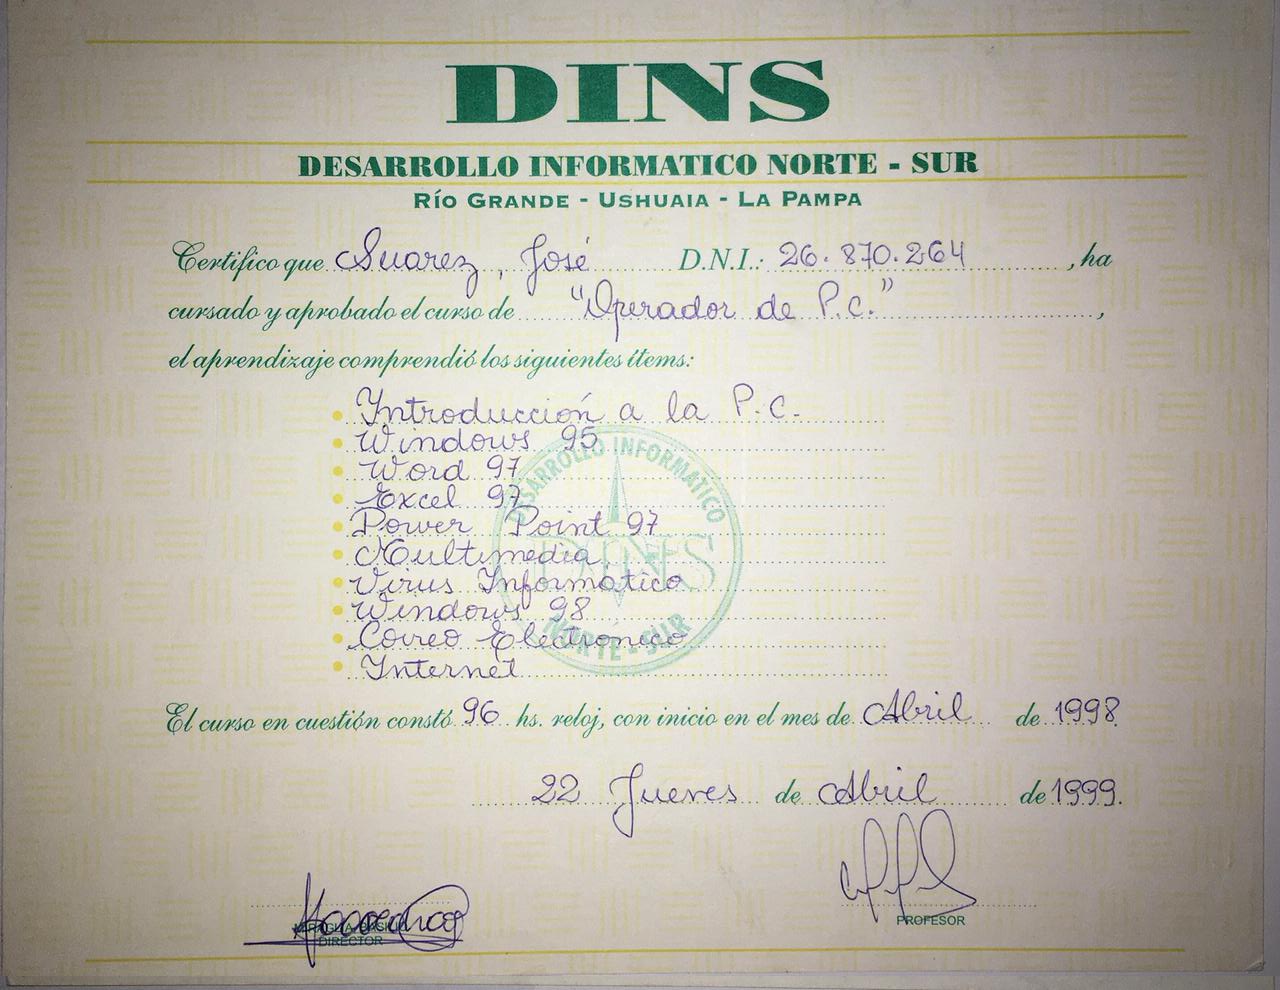 DINS
DESARROLLO INFORMATICO NORTE - SUR
RÍO GRANDE - USHUAIA - LA PAMPA
Certifico que Suarez, José D.N.I.: 26.870.264, ha
cursado y aprobado el curso de "Operador de P.C.",
el aprendizaje comprendió los siguientes ítems:
• Introducción a la P.C.
• Windows 95
• Word 97
• Excel 97
• Power Point 97
• Multimedia
• Virus Informatico
• Windows 98
• Correo Electronico
• Internet
DESARROLLO INFORMATICO
DINS
NORTE - SUR
El curso en cuestión constó 96 hs. reloj, con inicio en el mes de Abril de 1998.
22 Jueves de Abril de 1999.
PROFESOR
DIRECTOR